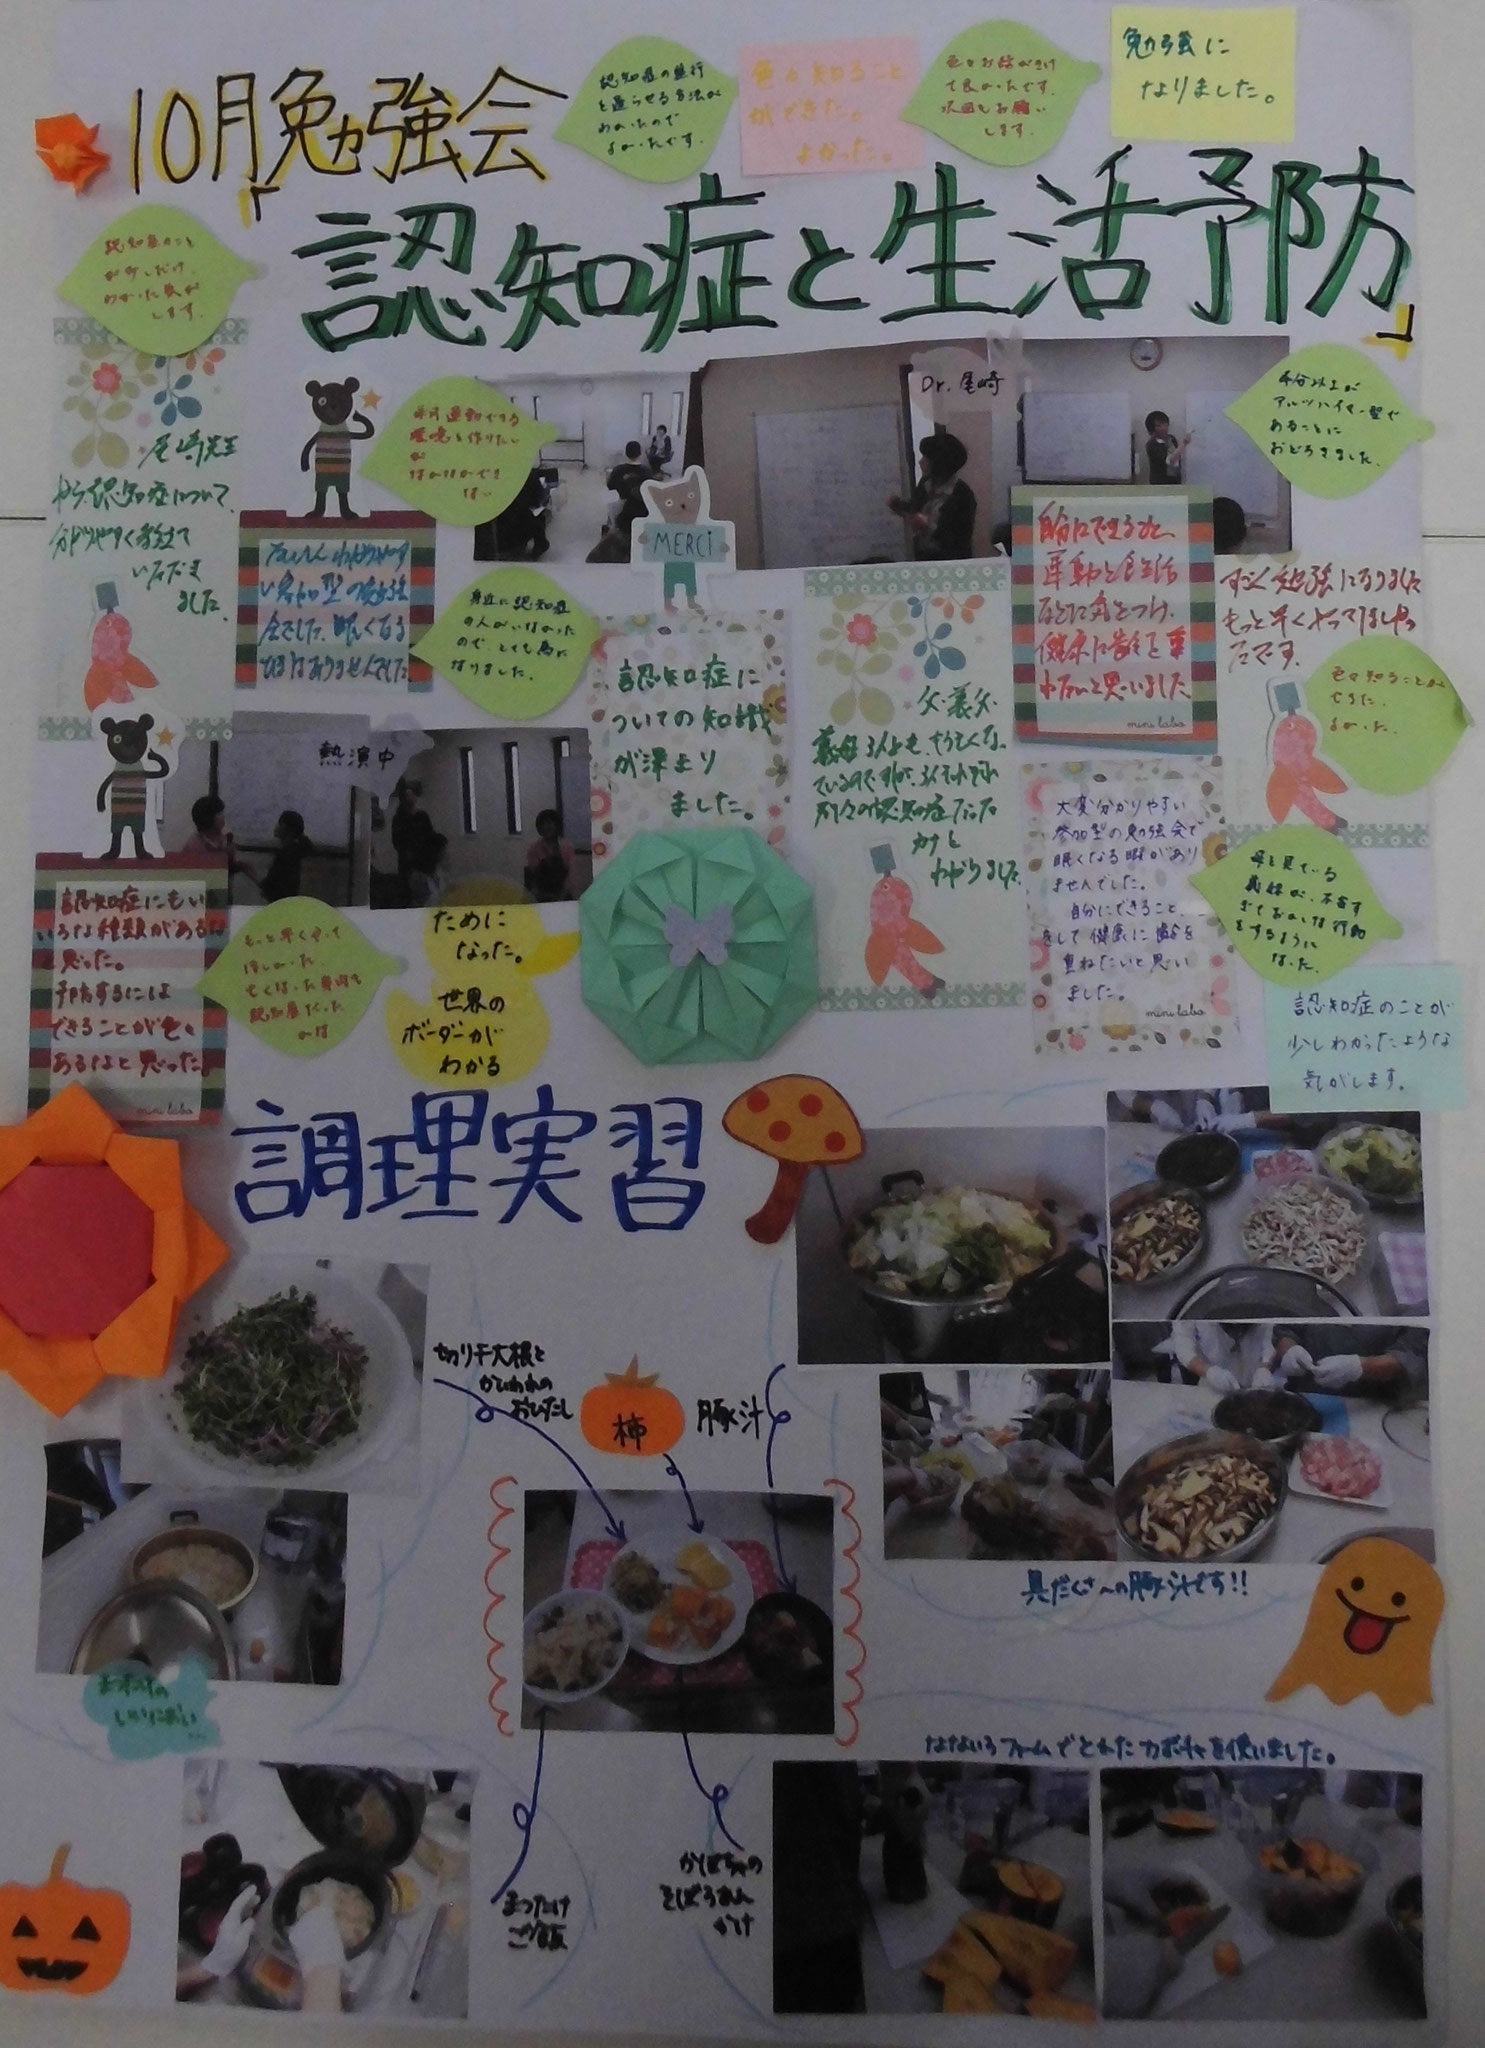 10月勉強会
「認知症と生活予防」
認知症の進行
を遅らせる方法が
わかったので
よかったです。
色々知ること
ができた。
よかった。
色々お話がきけ
て良かったです。
次回もお願い
します。
勉強に
なりました。
認知症のこと
が少しだけ
わかった気が
します。
尾崎先生
から認知症について、
分かりやすく教えて
いただき
ました。
毎日運動できる
環境を作りたい
が
なかなかでき
ない
Dr.尾崎
半分以上が
アルツハイマー型で
あることに
おどろきました。
MERCI
たいへんわかりやす
い参加型の勉強
会でした。眠くなる
ひまはありませんでした。
身近に認知症
の人がいなかった
ので、とても為に
なりました。
認知症に
ついての知識
が深まり
ました。
父・義父・
義母3人とも、
別々の認知症だった
カナと
わかりました
自分にできること、
運動と食生活
などに気をつけ、
健康に齢を重
ねたいと思いました
mini labo
すごく勉強になりました
もっと早くやってましかっ
たです。
色々知ることが
できた。
よかった。
熱演中
大変分かりやすい
参加型の勉強会で
眠くなる暇があり
ませんでした。
自分にできること、
をして健康に齢を
重ねたいと思い
ました。
mini labo
母を見ている
義妹が、不審す
ぎておかしな行動
をするように
なった。
認知症にもい
ろいろな種類があるな
と思った。
予防するには
できることが色々
あるなと思った。
mini labo
もっと早くやって
ほしかった。
亡くなった身内も
認知症だった
のは
ために
なった。
世界の
ボーダーが
わかる
認知症のことが
少しわかったような
気がします。
調理実習
切り干大根と
かいわれの
おひたし
柿
豚汁
具だくさ〜の豚汁です!!
まつたけの
いいにおい
…
なないろファームでとれたカボチャを使いました。
まつたけ
ご飯
かぼちゃの
そぼろあん
かけ